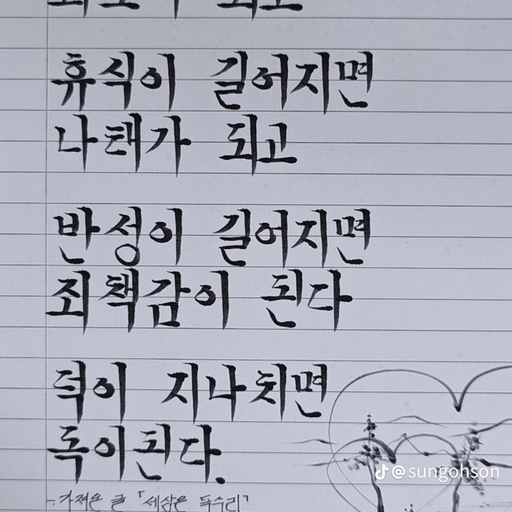 휴식이 길어지면
나태가 되고
반성이 길어지면
죄책감이 된다
덕이 지나치면
독이된다.
- 가져온 글 「세상은 독수리」
@sungohson